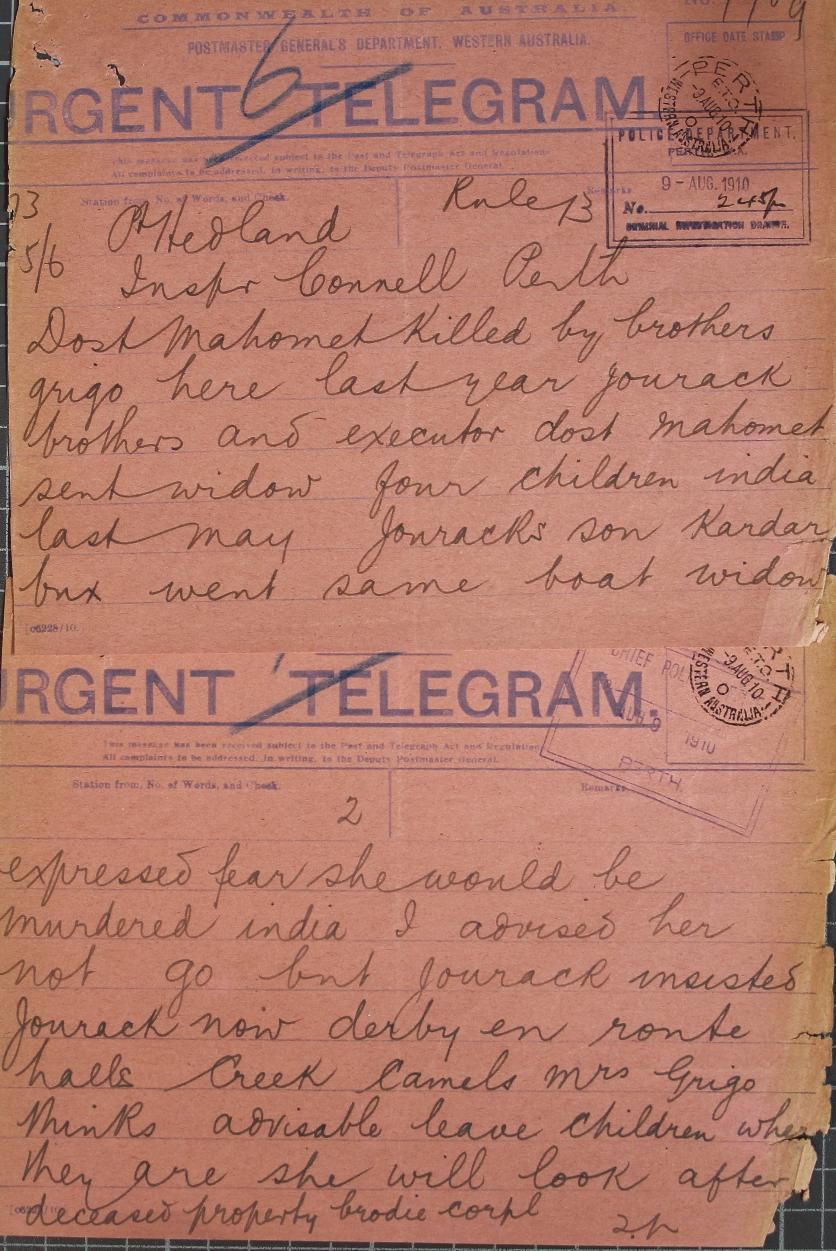 COMMONWEALTH OF AUSTRALIA.
POSTMASTER GENERAL'S DEPARTMENT, WESTERN AUSTRALIA.
No.
OFFICE DATE STAMP
6
URGENT TELEGRAM
PERTH
E.T.O.
9 AUG 10
WESTERN AUSTRALIA
This message has been received subject to the Post and Telegraph Act and Regulations.
All complaints to be addressed, in writing, to the Deputy Postmaster General.
POLICE DEPARTMENT.
PERTH
9 - AUG. 1910
No. 245p
CRIMINAL INVESTIGATION BRANCH.
Station from, No. of Words, and Check.
Remarks
73
5/6
Pt Hedland
Rule 13
Inspr Connell Perth
Dost Mahomet Killed by brothers
grigo here last year Jourack
brothers and executor dost mahomet
sent widow four children india
last may Jouracks son Kardar
bux went same boat widow
[c6228/10.
URGENT TELEGRAM.
CHIEF POL
AUG 9
1910
PERTH
PERTH
E.T.O.
9 AUG 10
WESTERN AUSTRALIA
This message has been received subject to the Post and Telegraph Act and Regulation
All complaints to be addressed, in writing, to the Deputy Postmaster General.
Station from, No. of Words, and Check.
Remarks
2
expressed fear she would be
murdered india I advised her
not go but Jourack insisted
Jourack now derby en route
halls Creek Camels mrs Grigo
thinks advisable leave children where
they are she will look after
deceased property brodie corpl